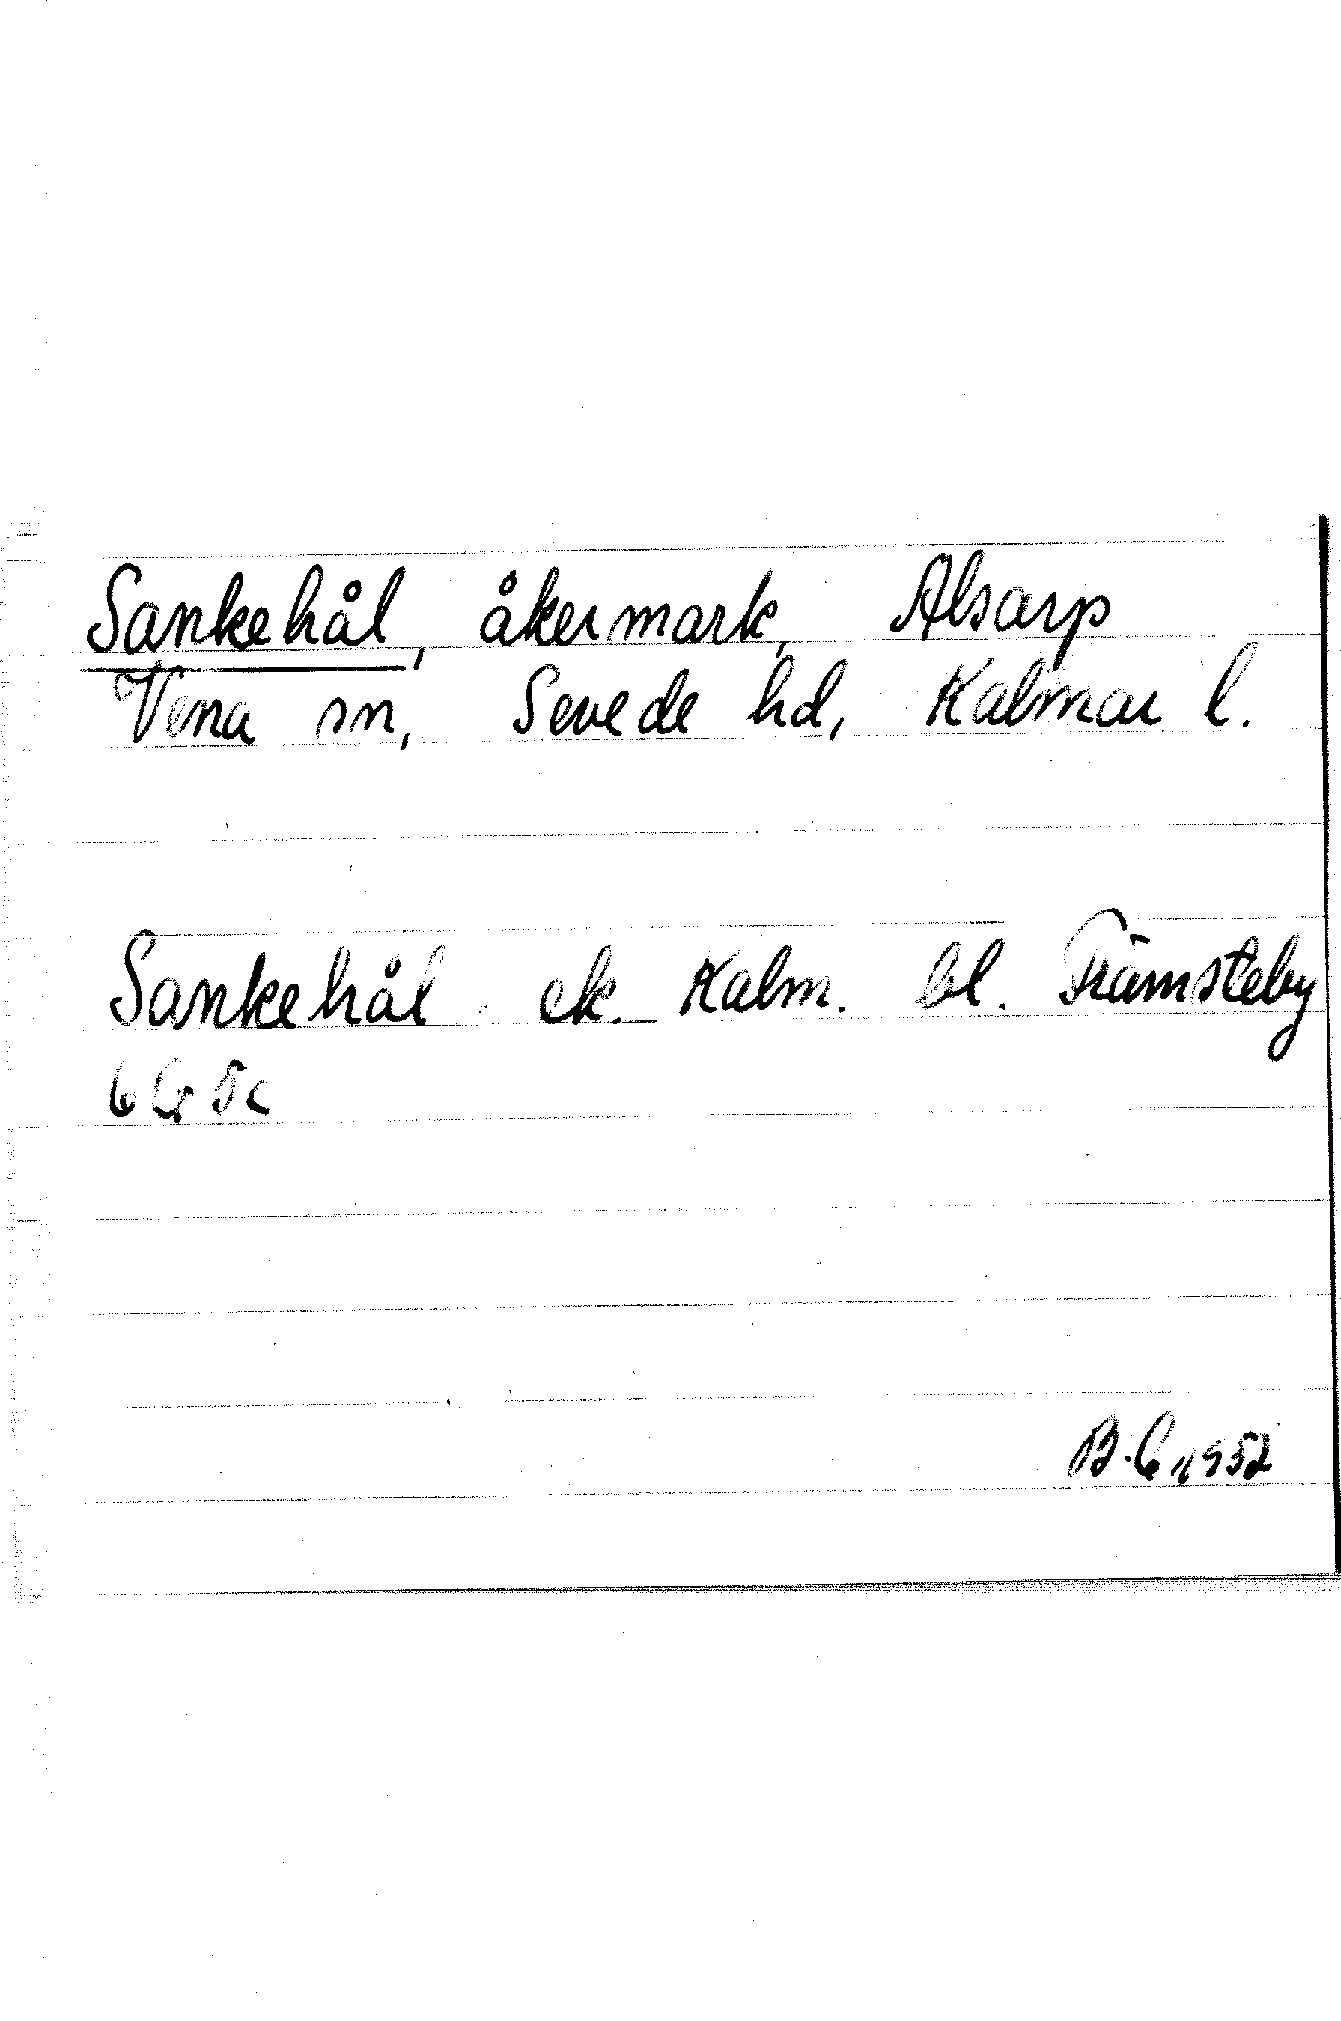 Sankehål, åkermark, Alsarp
Vena sn, Sevede hd, Kalmar l.
Sankehål ek. Kalm. bl. Främsteby
6G 5c
B.C. 1952